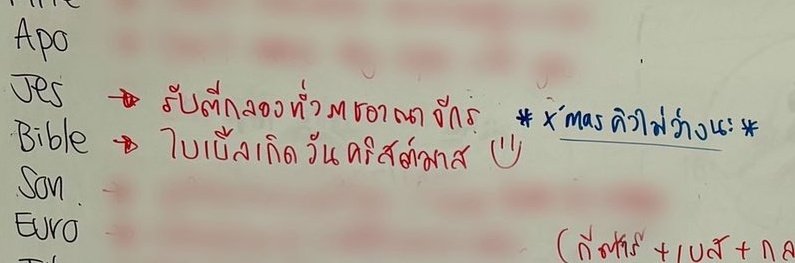 Apo
Jes → รับตีกลองทั่วราชอาณาจักร * x'mas คิวไม่ว่างนะ *
Bible → ไบเบิ้ลเกิดวันคริสต์มาส
Son
Euro
(กีตาร์ + เบส + กล